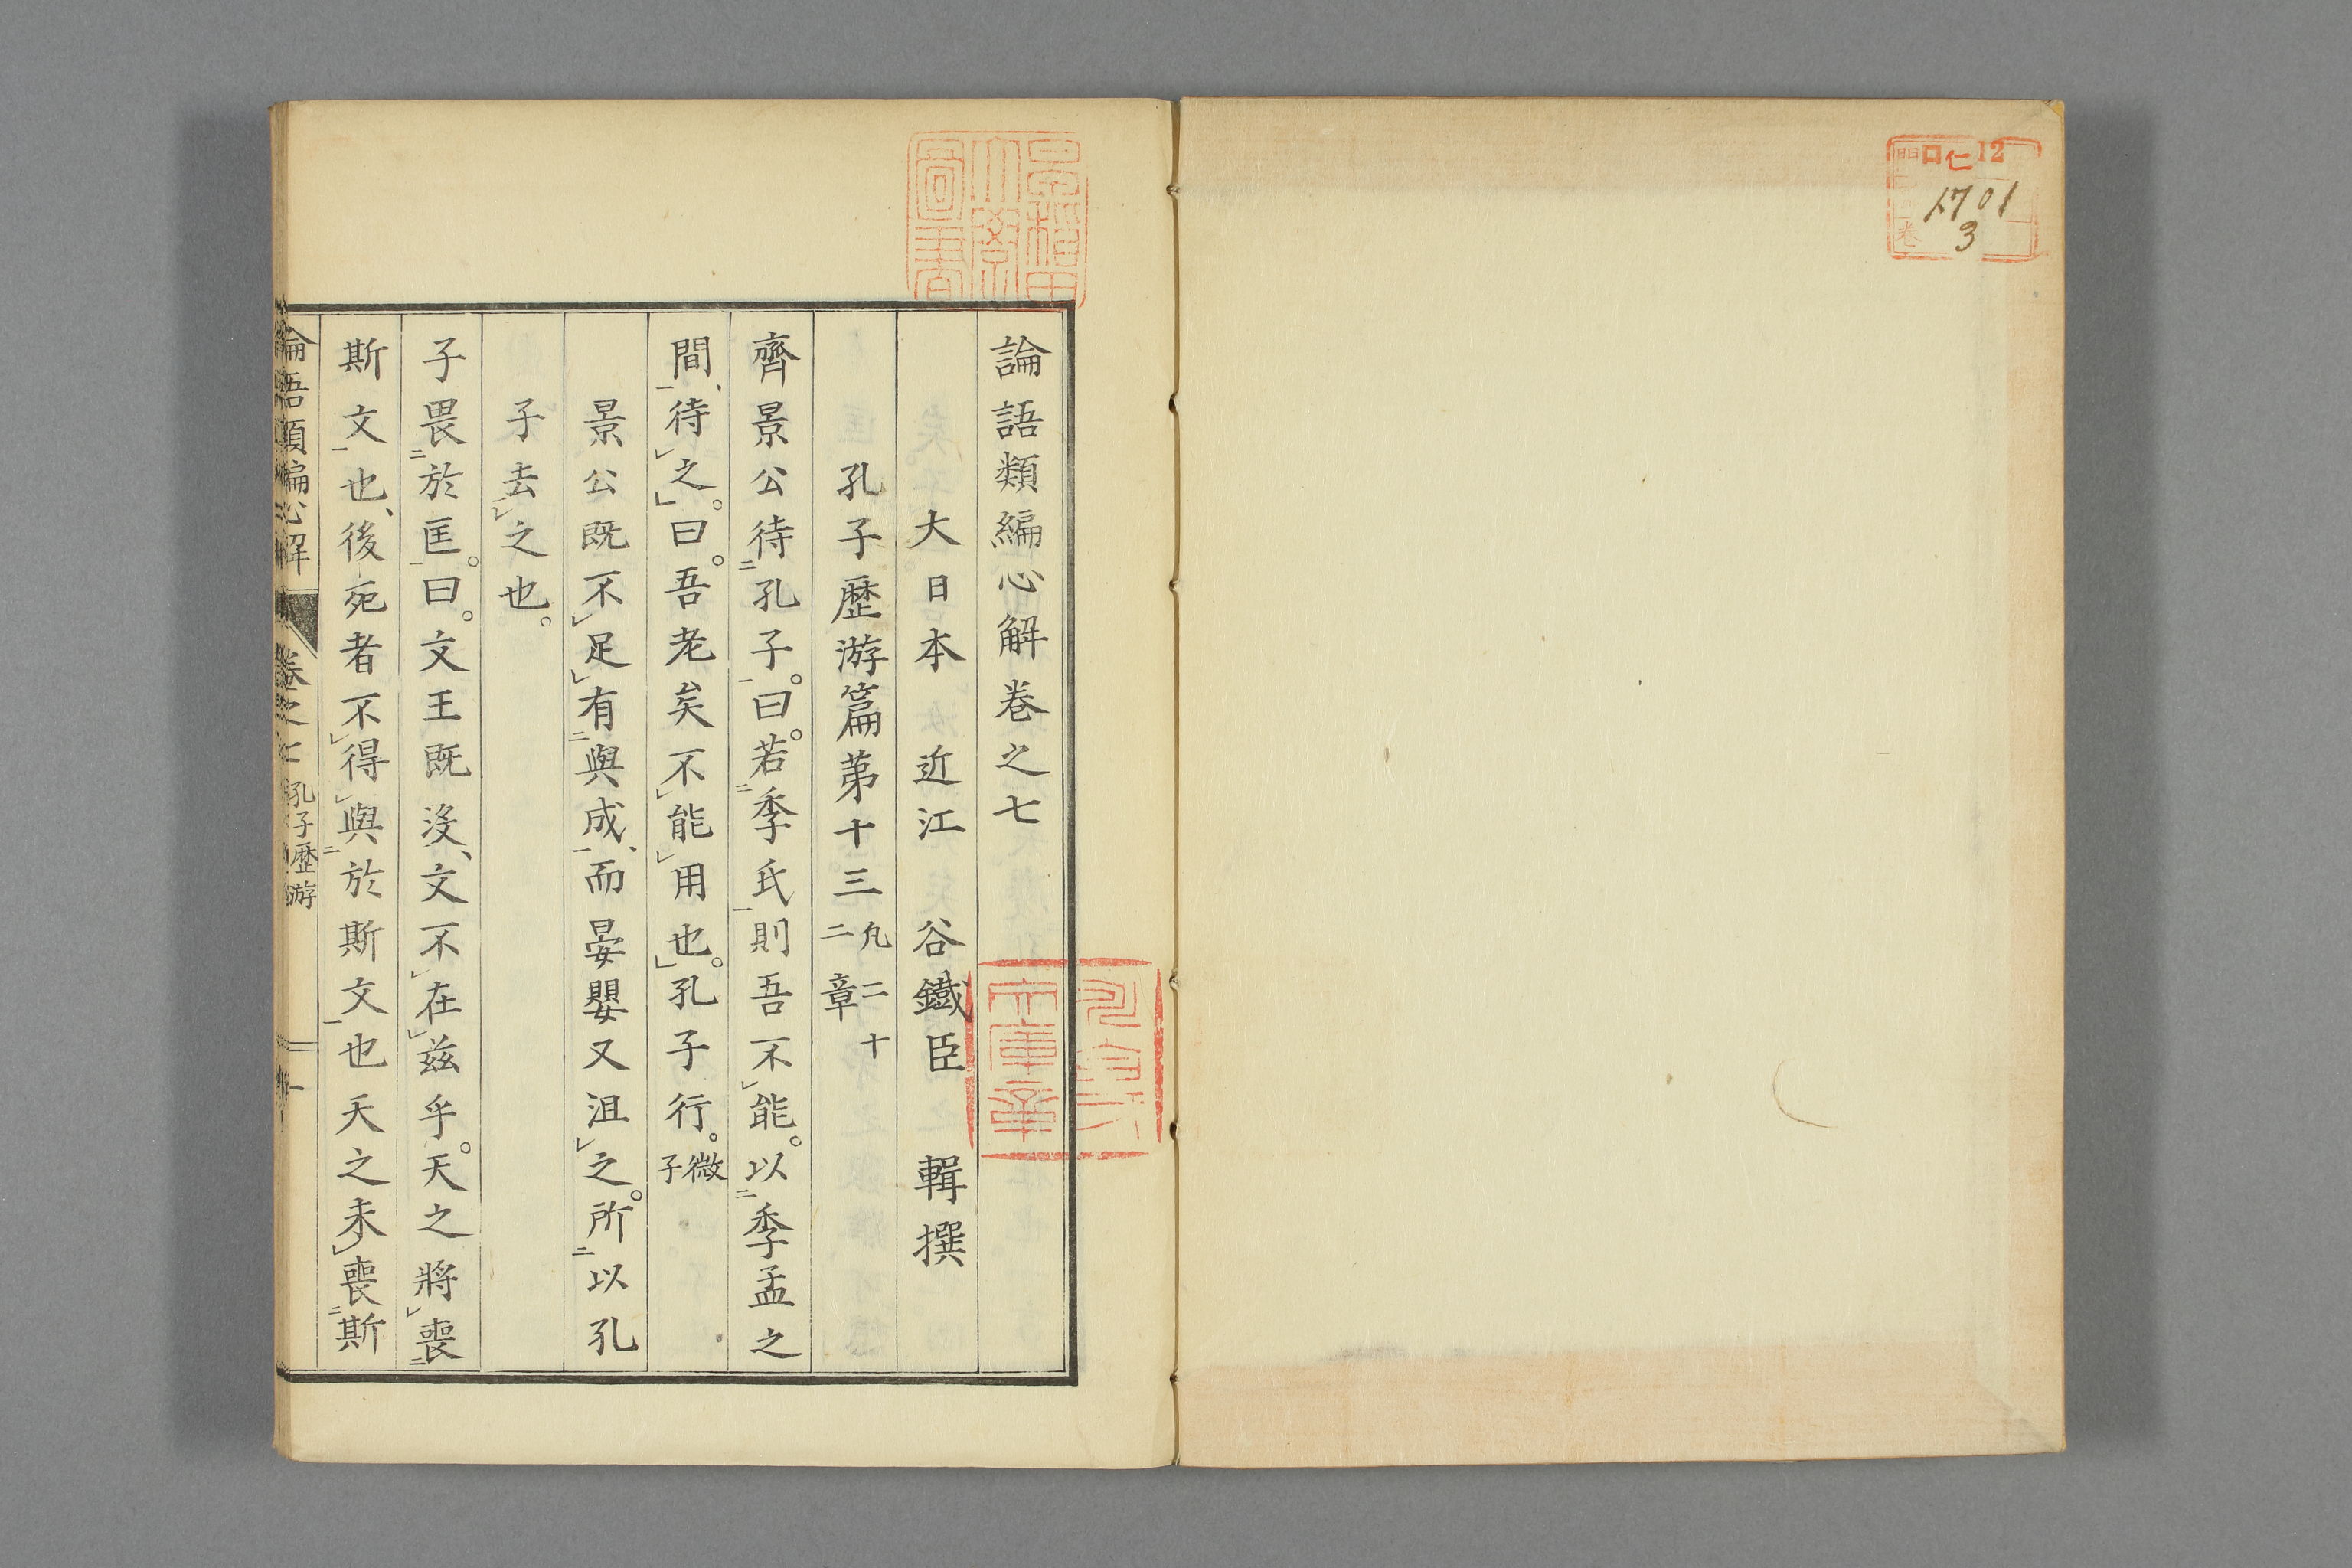 口仁12
1701
3
早稲田
大學
圖書
論語類編心解卷之七
大日本 近江 谷鐵臣 輯撰
孔子歷游篇第十三 凡二十二章
齊景公待孔子。曰。若季氏則吾不能。以季孟之
間、待之。曰。吾老矣不能用也。孔子行。微子
景公既不足有與成、而晏嬰又沮之。所以孔
子去之也。
子畏於匡。曰。文王既沒、文不在茲乎。天之將喪
斯文也、後死者不得與於斯文也天之未喪斯
論語類編心解 卷之七 孔子歷游 一